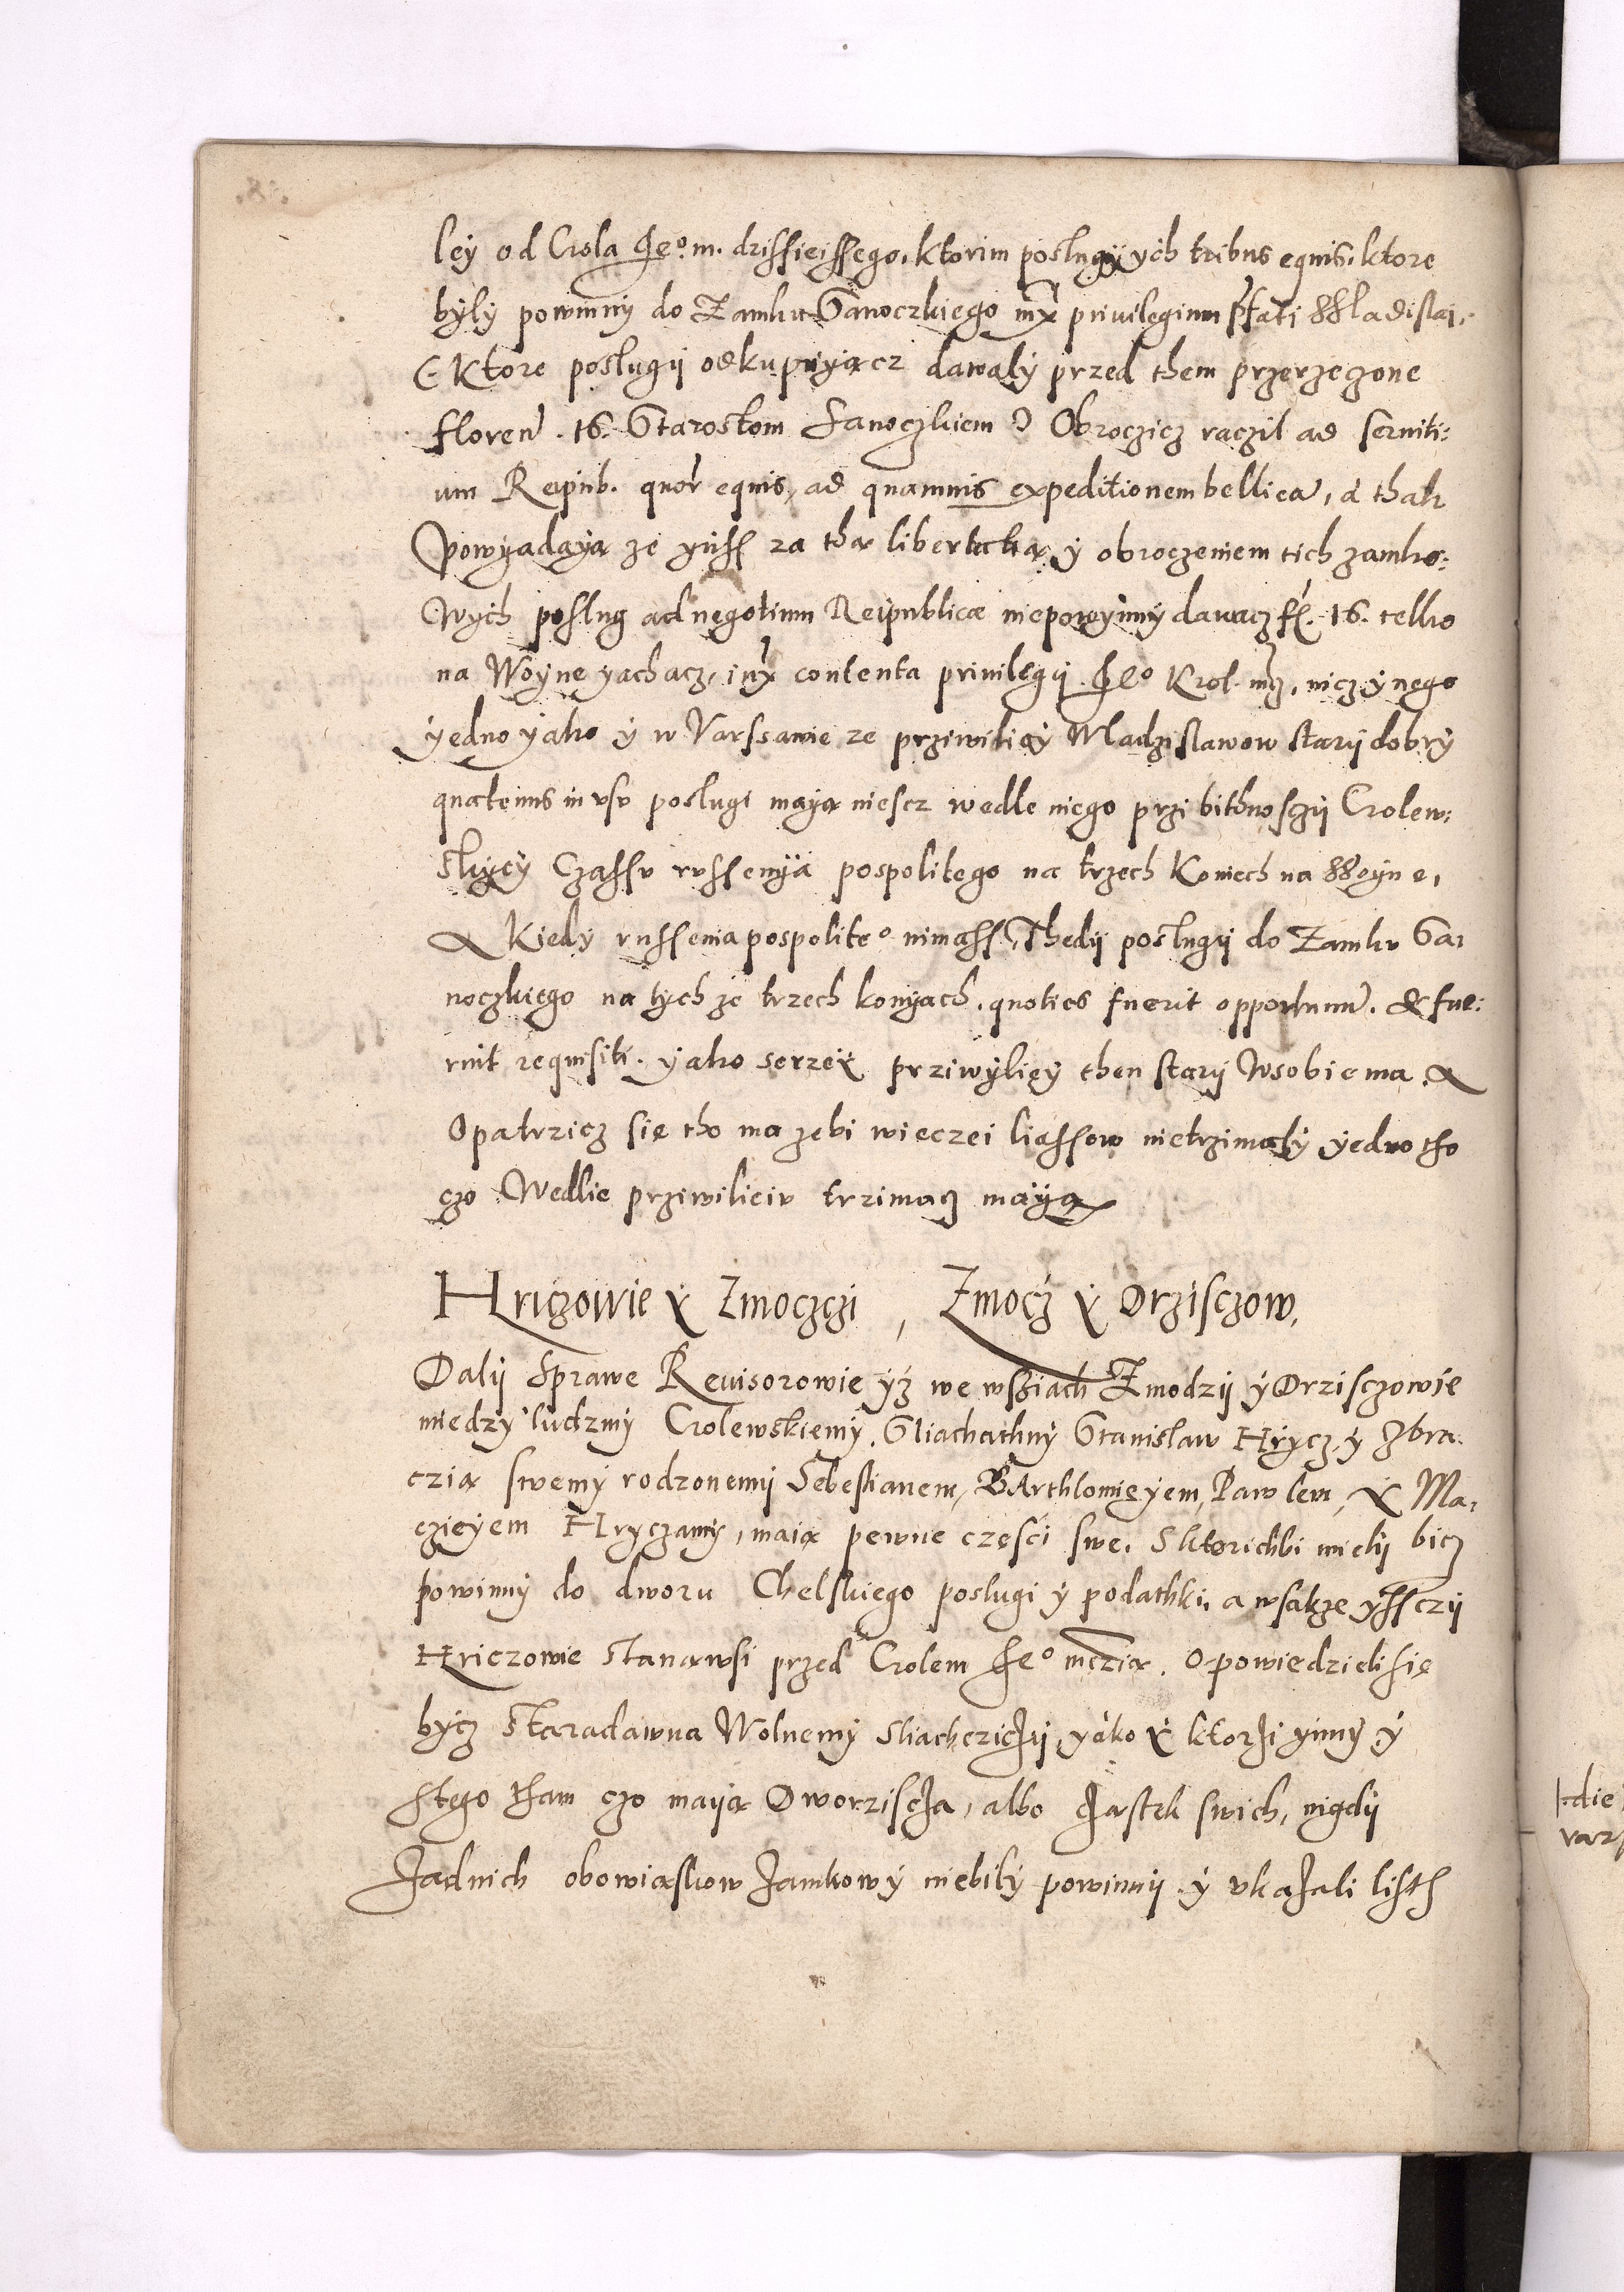 ley od Crola Je° m. dzissieissego, ktorim poslugij ych tribus equis, ktore
byly powinny do Zamku Sanoczkiego iux privilegium pfati Wladislai,
(Ktore poslugij odkupuyącz dawaly przed them przerzeczone
floren. 16. Starostom Sanoczkiem) Obroczicz raczil ad seruiti:
um Reipub. quor equis, ad quamuis expeditionem bellica, a thak
powyadaya ze yuss za tha libertata y obroczeniem tich zamko:
wych poslug ad negotium Reipublicæ niepowynny dawacz fl. 16. telko
na Woyne yachacz, iux contenta priuilegij Je° Krol. mcz, nicz ynego
yedno yako y w Varssawie ze prziwiliey Wladzislawow starij dobry
quatenus in vsu poslugi mayą niescz wedle niego przi bithnosczij Crolew:
skyey Czassu russenya pospolitego na trzech Koniech na Woyne,
A Kiedy russenia pospolite° nimass, Thedij poslugij do Zamku Sa:
noczkiego na tych ze trzech konyach, quoties fuerit opportunu. & fue:
rint requisiti. yako serzey prziwyliey then starij Wsobie ma. A
Opatrzicz się tho ma zebi wieczei liassow nietrzimaly yedno tho
czo Wedlie prziwilieiu trzimacz mayą
Hriczowie y Zmoczczi, Zmocz y Orzisczow,
Dalij Sprawe Reuisorowie yz we wsziach Zmodzij y Orzisczowie
miedzy ludzmy Crolewskiemy, Sliachathny Stanislaw Hrycz y zbra:
czią swemy rodzonemij Sebestianem, BArthlomieyem, Pawlem, y Ma:
czieyem Hryczamy, maią pewne częsci swe, Sktorichbi mielij bicz
powinny do dworu Chelskiego poslugi y podathki, a wsakze yssczij
Hriczowie Stanąwsi przed Crolem Je° mczią. Opowiedzieli się
bycz Staradawna Wolnemy Sliachcziczij, yako y ktorzi ynny y
stego tham czo maiją Dworziscza, albo Cząstek swich, nigdij
zadnich obowiąskow zamkowy niebily powinnij y vkazali listh